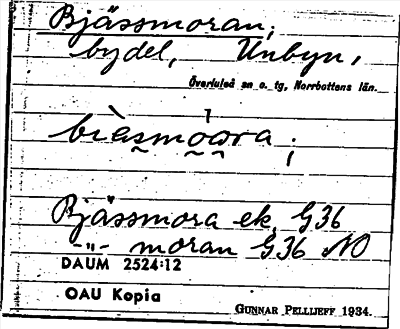 Bjässmoran,
bydel, Unbyn,
Överluleå sn o. tg, Norrbottens län.
bìæsmoωra ;
Bjässmora ek. G36
-"- moran G36 NO
DAUM 2524:12
OAU Kopia
GUNNAR PELLIJEFF 1934.